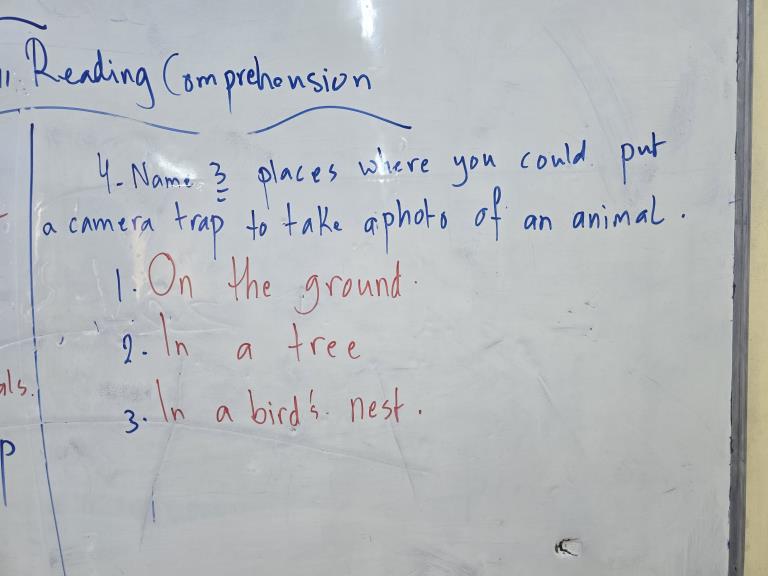 Reading Comprehension
4- Name 3 places where you could put
a camera trap to take a photo of an animal.
1. On the ground.
2. In a tree
3. In a bird's nest.
als.
p